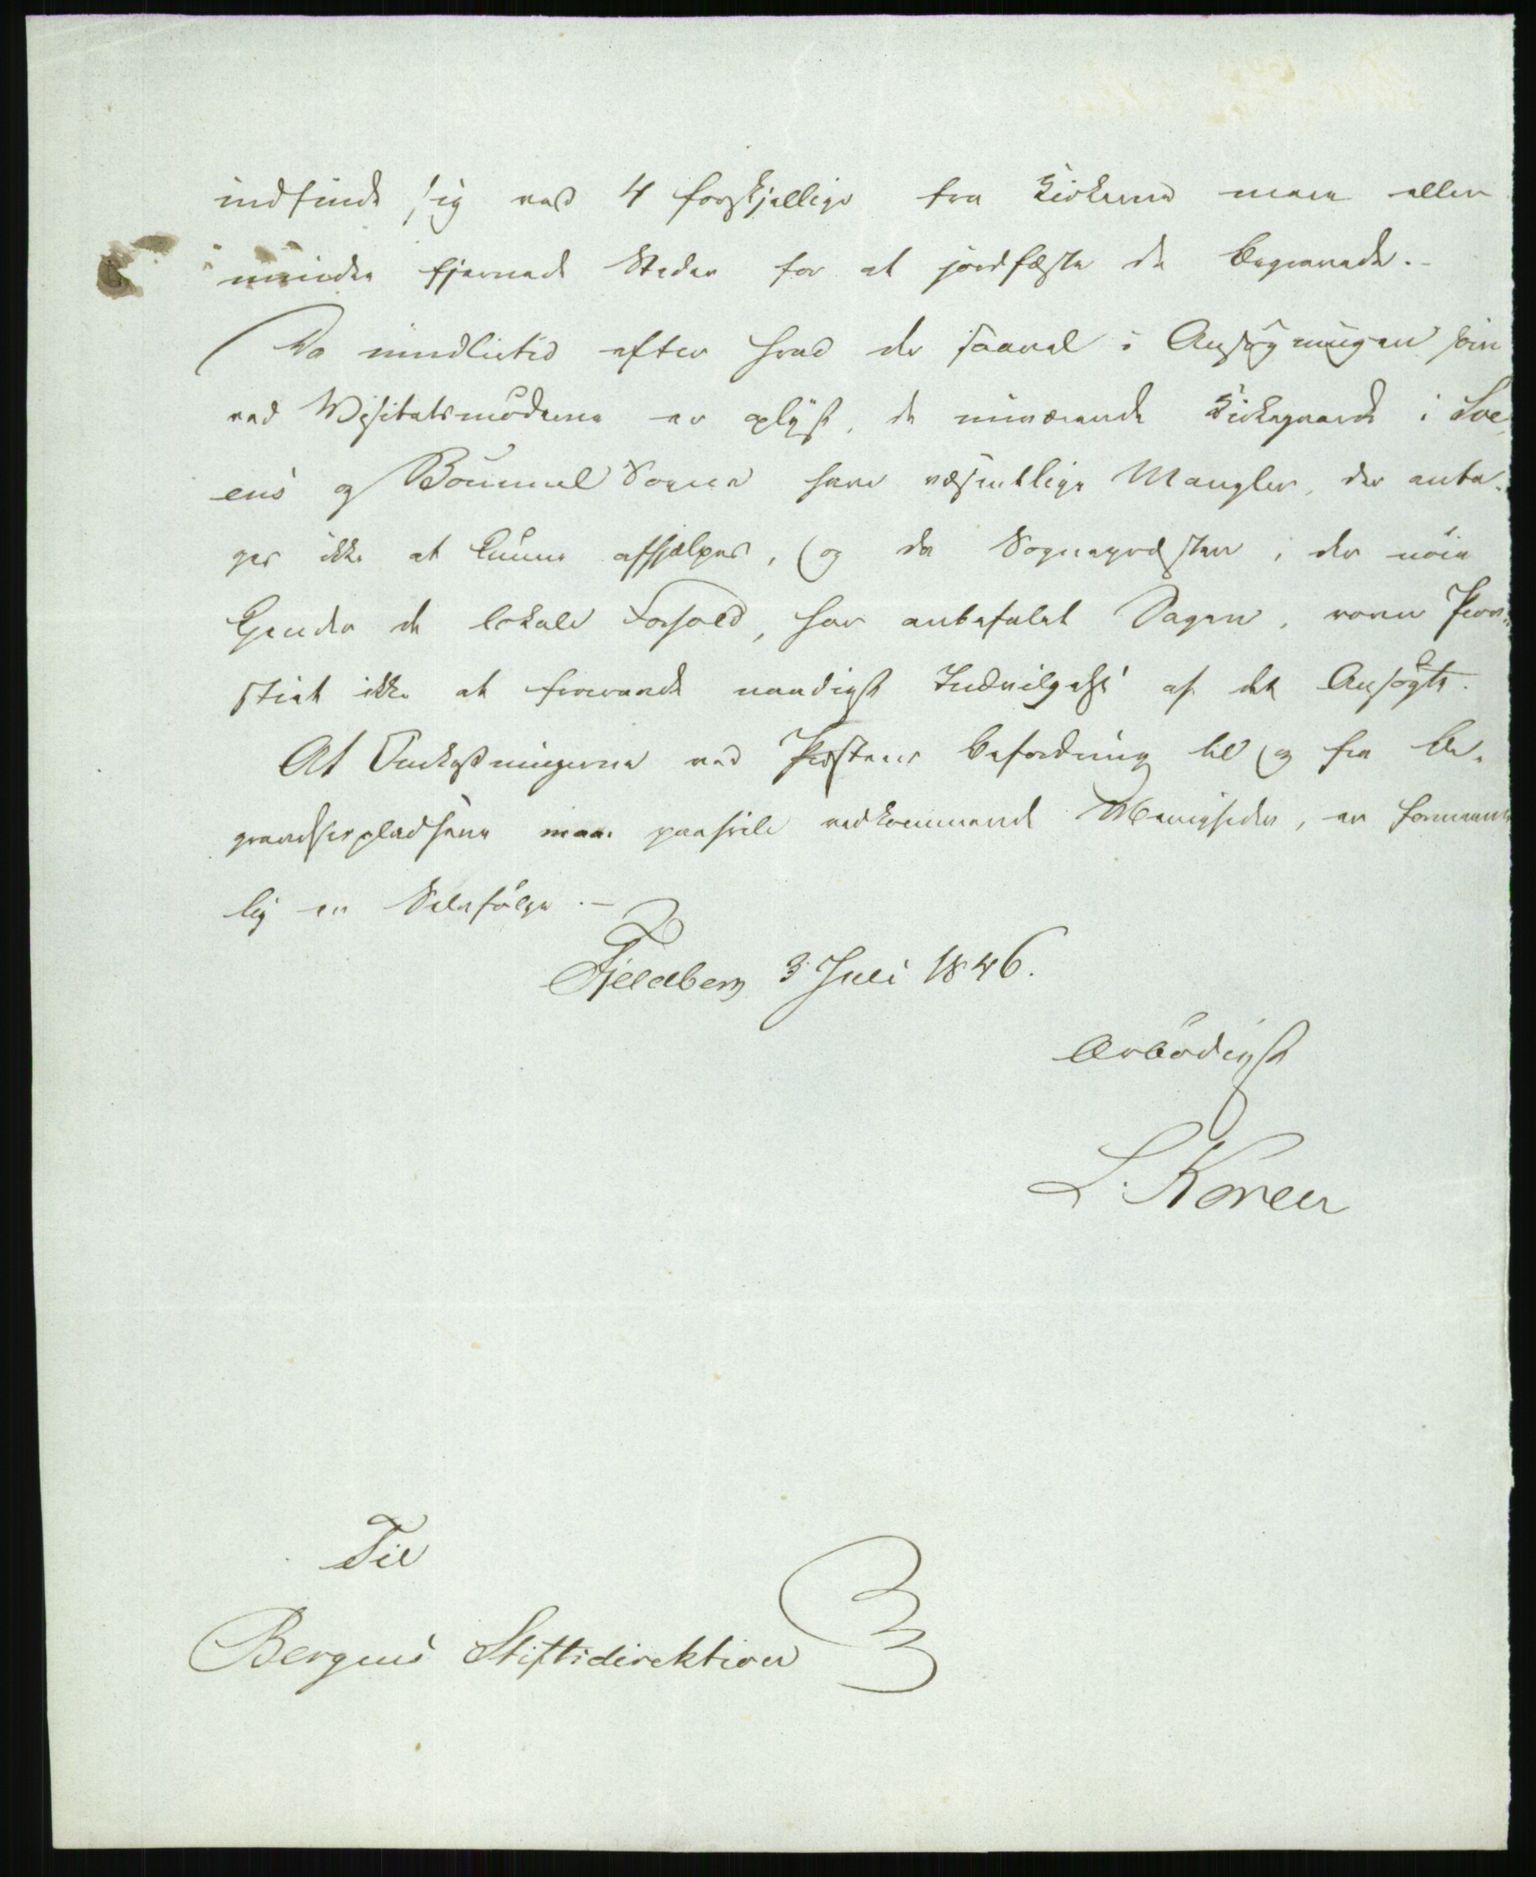 indfinde sig ved 4 forskjellige fra Kirkerne mere eller
mindre fjernede Steder for at jordfæste de begravede. -
Da imidlertid efter hvad der saavel i Ansøgningen som
ved Visitatsmöderne er oplyst, de nuværende Kirkegaarde i
ens og Bömmel Sogne have væsentlige Mangler, der anta-
ges ikke at kunne afhjælpes, og da Sognepræsten, der nöie
kjender de lokale Forhold, har anbefalet Sagen, vover
ikke at fraraade naadigst Indvilgelse af det Ansögte.
At Omkostningerne ved Præstens Befordring til og fra Be-
gravelsespladsene maa paahvile vedkommende Menigheder, er formeent-
lig en Selvfölge. -
Fjeldberg 3 Juli 1846.
Ærbödigst
L. Koren
Til
Bergens Stiftsdirektion